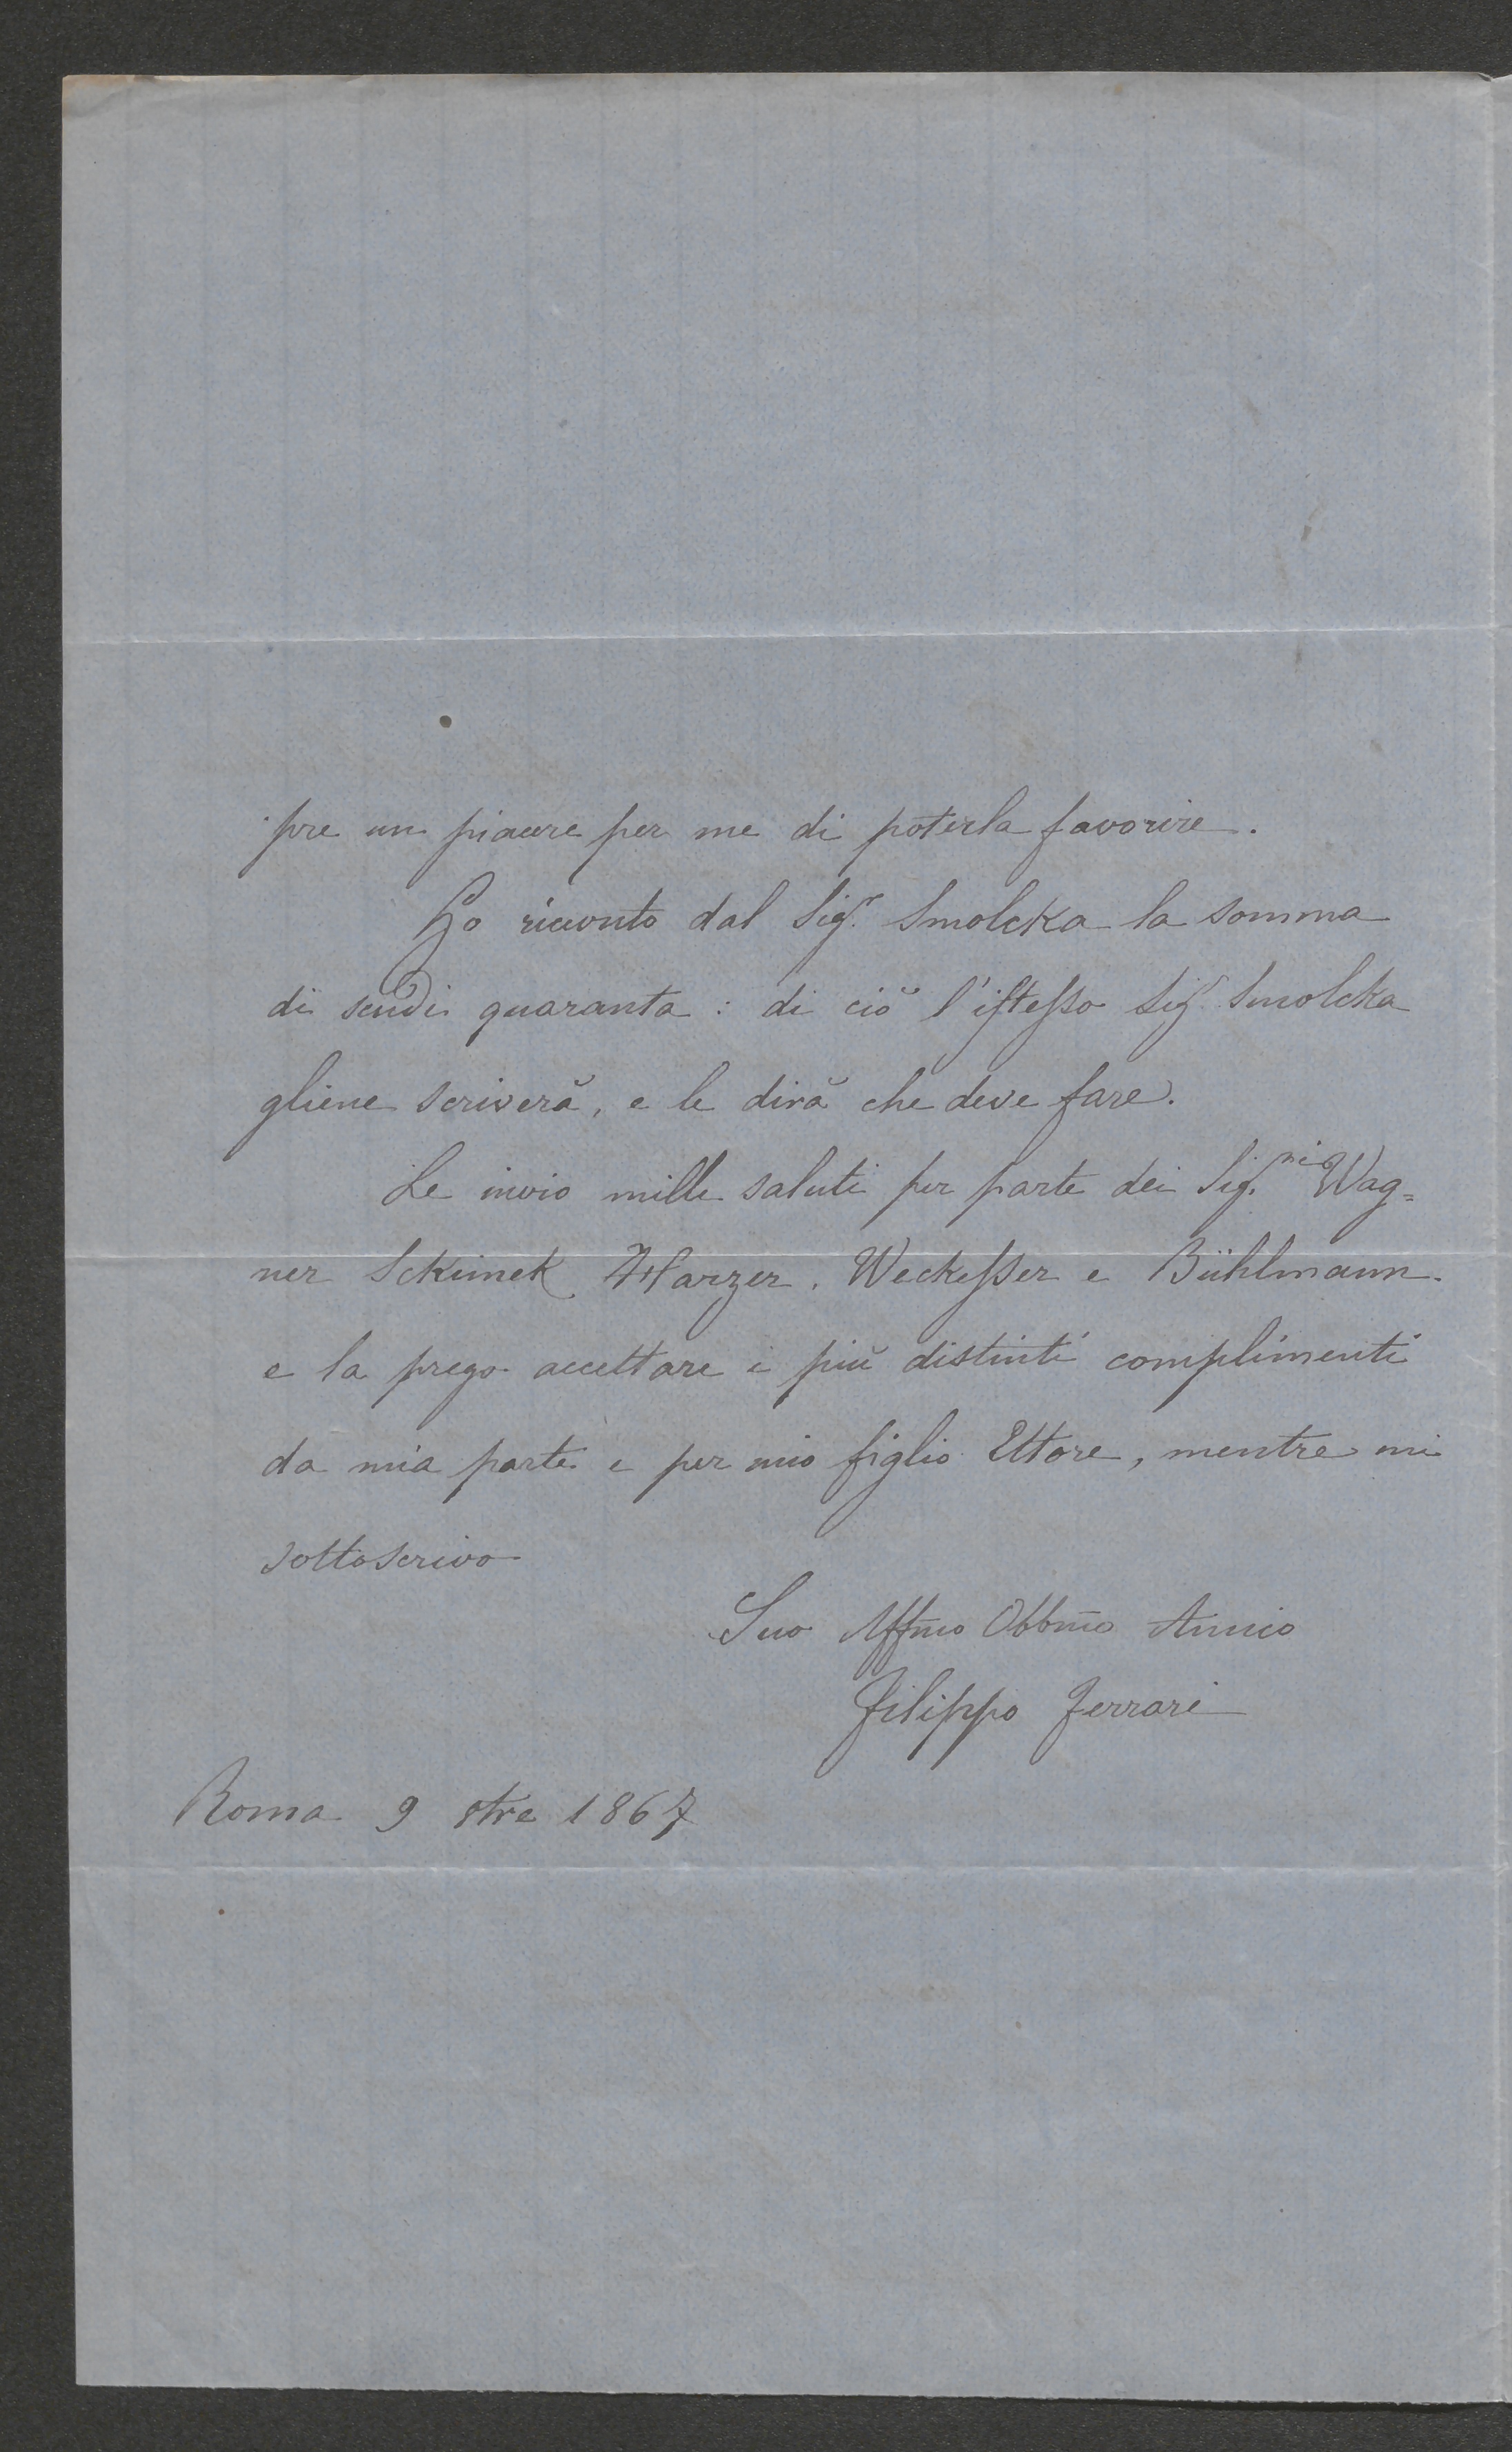 pre un piacere per me di poterla favorire.
Ho ricevuto dal Sigr. Smolcka la somma
di scudi quaranta: di ciò l'istesso Sigr. Smolcka
gliene scriverà, e le dirà che deve fare.
Le invio mille saluti per parte dei Sig.ri Wag=
ner Sckimek Harzer, Weckesser e Bühlmann.
e la prego accettare i più distinti complimenti
da mia parte e per mio figlio Ettore, mentre mi
sottoscrivo
Suo Affmo Obbmo Amico
Filippo Ferrari
Roma 9 8tre 1867